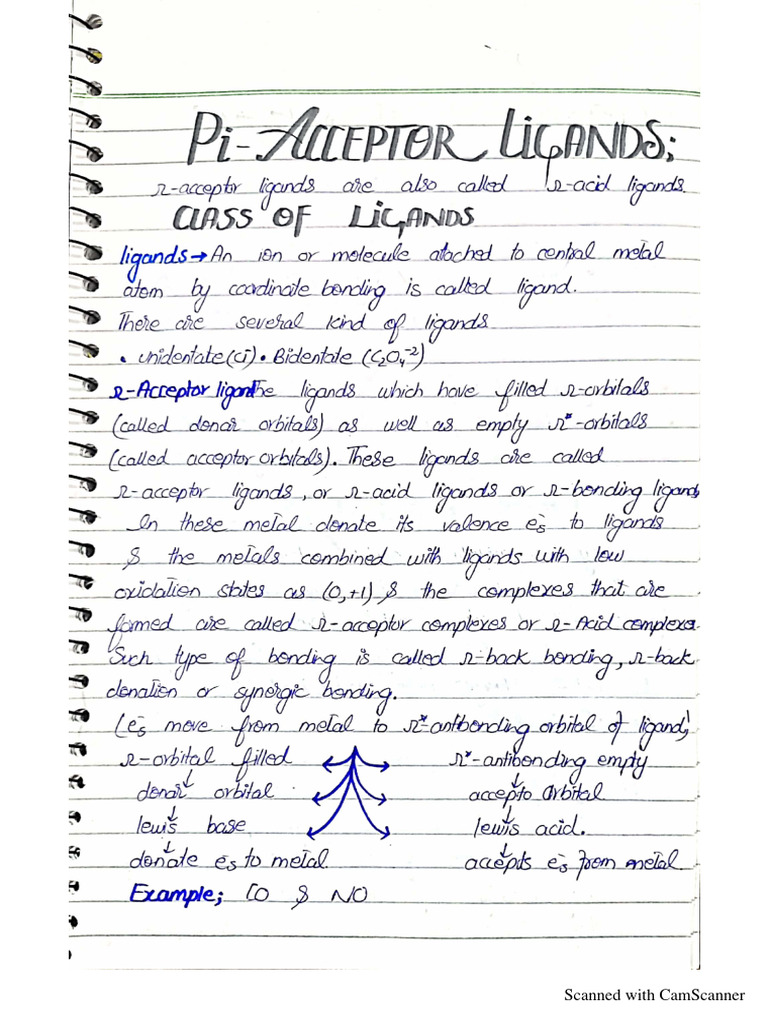 Pi-ACCEPTOR LIGANDS;
π-acceptor ligands are also called π-acid ligands.
CLASS OF LIGANDS
ligands → An ion or molecule atached to central metal
atom by coordinate bonding is called ligand.
There are several kind of ligands
• Unidentate (Cl) • Bidentate (C₂O₄⁻²)
π-Acceptor ligand The ligands which have filled π-orbitals
(called donar orbitals) as well as empty π*-orbitals
(called acceptor orbitals). These ligands are called
π-acceptor ligands, or π-acid ligands or π-bonding ligands
In these metal donate its valence e⁻s to ligands
& the metals combined with ligands with low
oxidation states as (0,+1) & the complexes that are
formed are called π-acceptor complexes or π-Acid complexes.
Such type of bonding is called π-back bonding, π-back
donation or synergic bonding.
(e⁻s move from metal to π*antibonding orbital of ligand)
π-orbital filled π*-antibonding empty
↓ ↓
donar orbital accepto orbital
↓ ↓
lewis base lewis acid.
↓ ↓
donate e⁻s to metal accepts e⁻s from metal
Example; CO & NO
Scanned with CamScanner